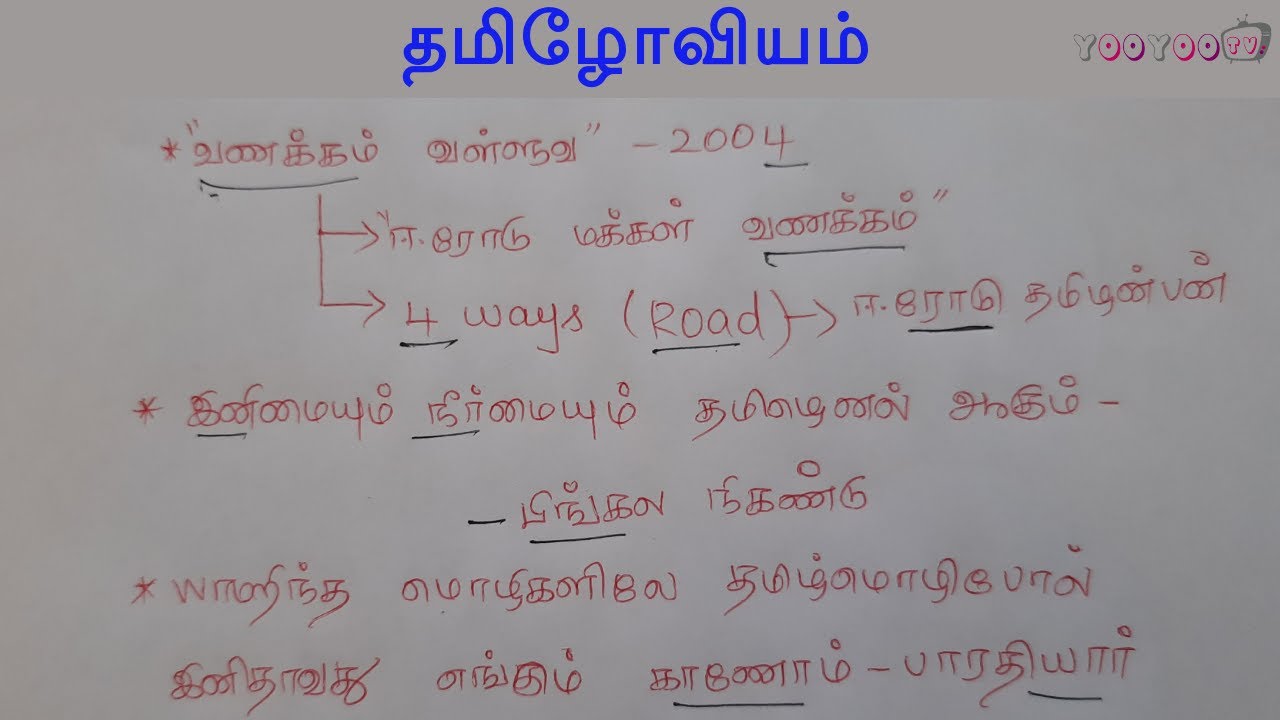 தமிழோவியம்
YOOYOO TV.
* "வணக்கம் வள்ளுவ" - 2004
→ "ஈரோடு மக்கள் வணக்கம்"
→ 4 ways (Road) → ஈரோடு தமிழன்பன்
* இனிமையும் நீர்மையும் தமிழெனல் ஆகும் -
- பிங்கல நிகண்டு
* யாமறிந்த மொழிகளிலே தமிழ்மொழிபோல்
இனிதாவது எங்கும் காணோம் - பாரதியார்